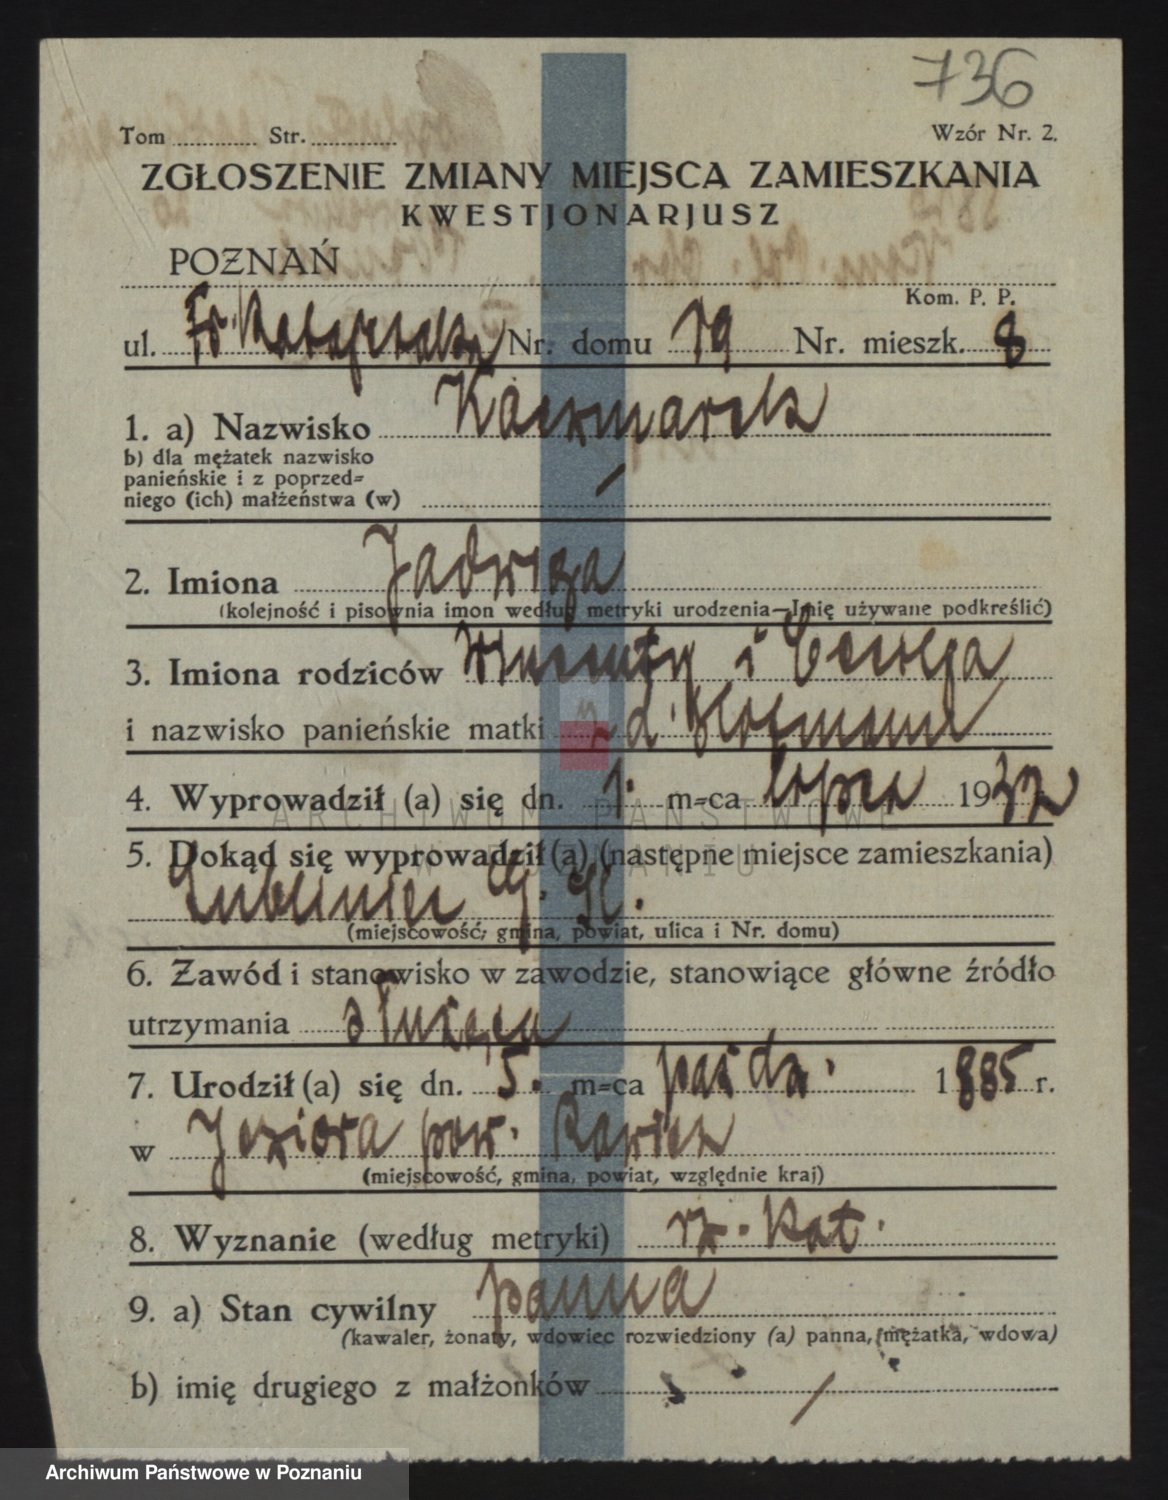 736
Tom ........ Str. ........ Wzór Nr. 2.
ZGŁOSZENIE ZMIANY MIEJSCA ZAMIESZKANIA
KWESTJONARJUSZ
POZNAŃ
Kom. P. P.
ul. Fr. Ratajczaka Nr. domu 19 Nr. mieszk. 8
1. a) Nazwisko Kaczmarek
b) dla mężatek nazwisko
panieńskie i z poprzed=
niego (ich) małżeństwa (w)
2. Imiona Jadwiga
(kolejność i pisownia imon według metryki urodzenia—Imię używane podkreślić)
3. Imiona rodziców Wincenty i Cecylja
i nazwisko panieńskie matki z d.
4. Wyprowadził (a) się dn. 1. m=ca lipca 1932 r.
5. Dokąd się wyprowadził (a) (następne miejsce zamieszkania)
Lubliniec G. Śl.
(miejscowość, gmina, powiat, ulica i Nr. domu)
6. Zawód i stanowisko w zawodzie, stanowiące główne źródło
utrzymania służąca
7. Urodził (a) się dn. 5. m=ca paźdz. 1885 r.
w Jeziora pow. Rawicz
(miejscowość, gmina, powiat, względnie kraj)
8. Wyznanie (według metryki) rz. kat.
9. a) Stan cywilny panna
(kawaler, żonaty, wdowiec rozwiedziony (a) panna, mężatka, wdowa)
b) imię drugiego z małżonków
ARCHIWUM PAŃSTWOWE
W POZNANIU
Archiwum Państwowe w Poznaniu